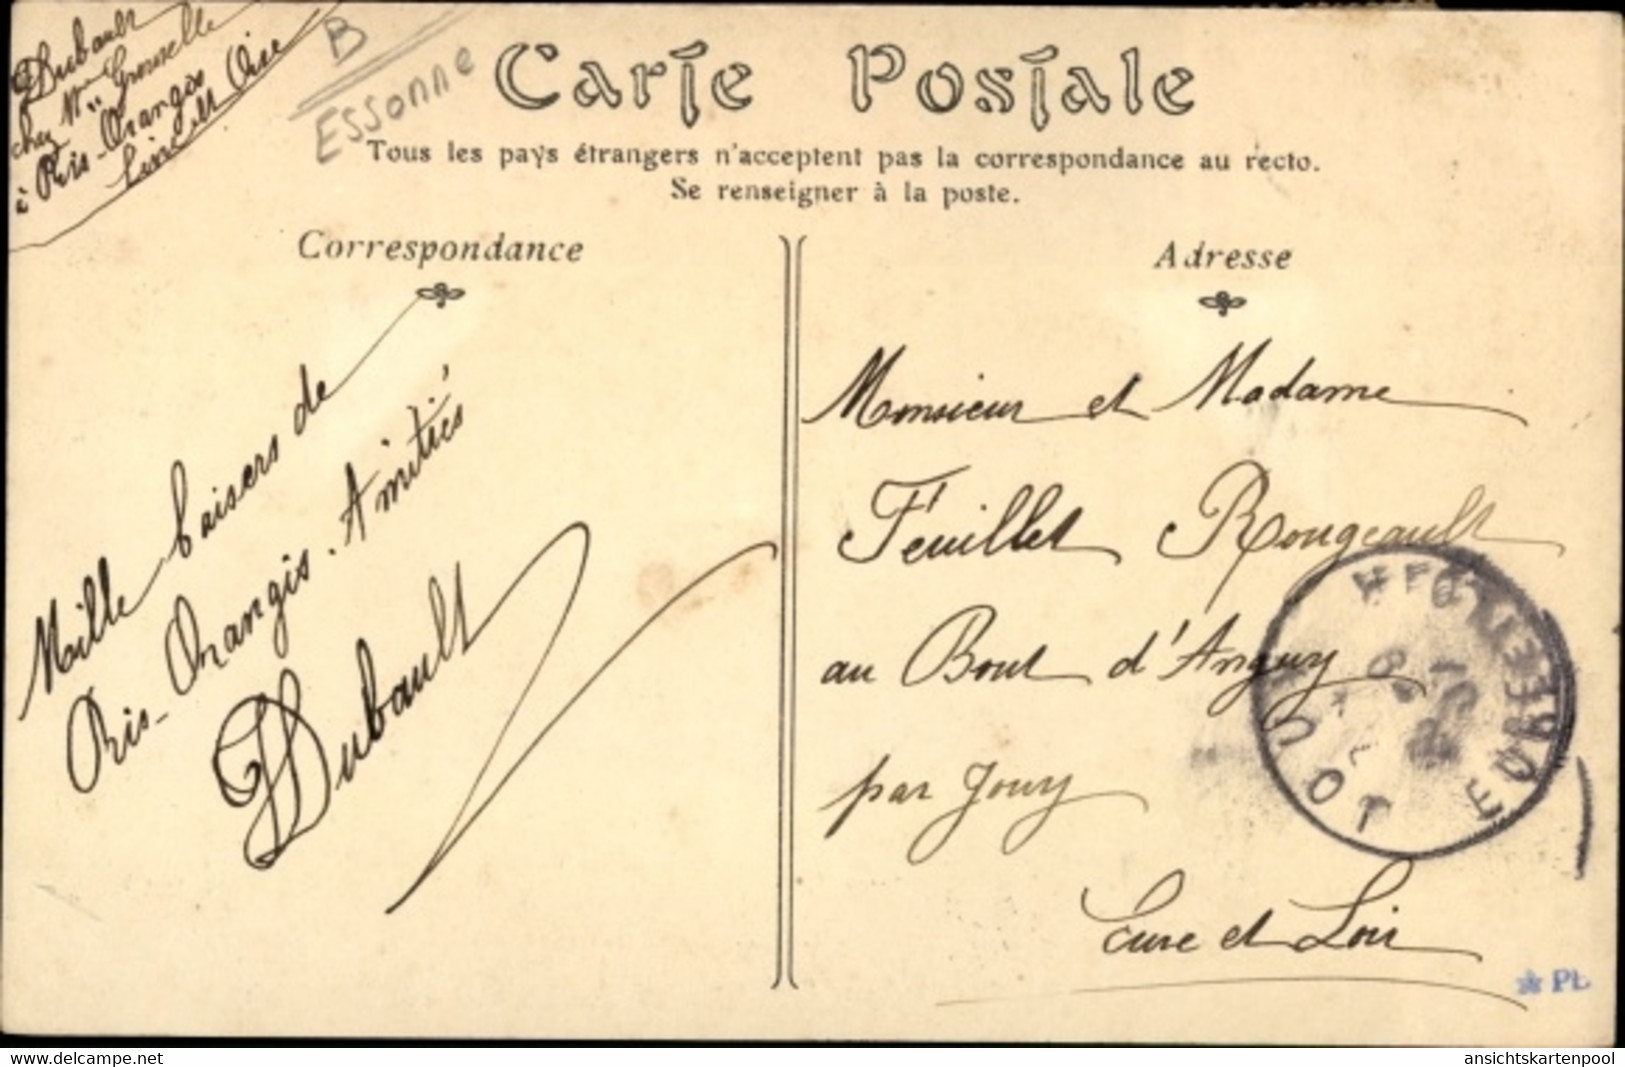 Dubault
chez Mme Grouselle
à Ris-Orangis
Seine et Oise
B
ESSONNE
Carte Postale
Tous les pays étrangers n'acceptent pas la correspondance au recto.
Se renseigner à la poste.
Correspondance
Mille baisers de
Ris-Orangis. Amitiés
Dubault
Adresse
Monsieur et Madame
Feuillet Rougeault
au Bout d'Anguy
par Jouy
Eure et Loir
JOUY
EURE ET LOIR
* PL
www.delcampe.net
ansichtskartenpool